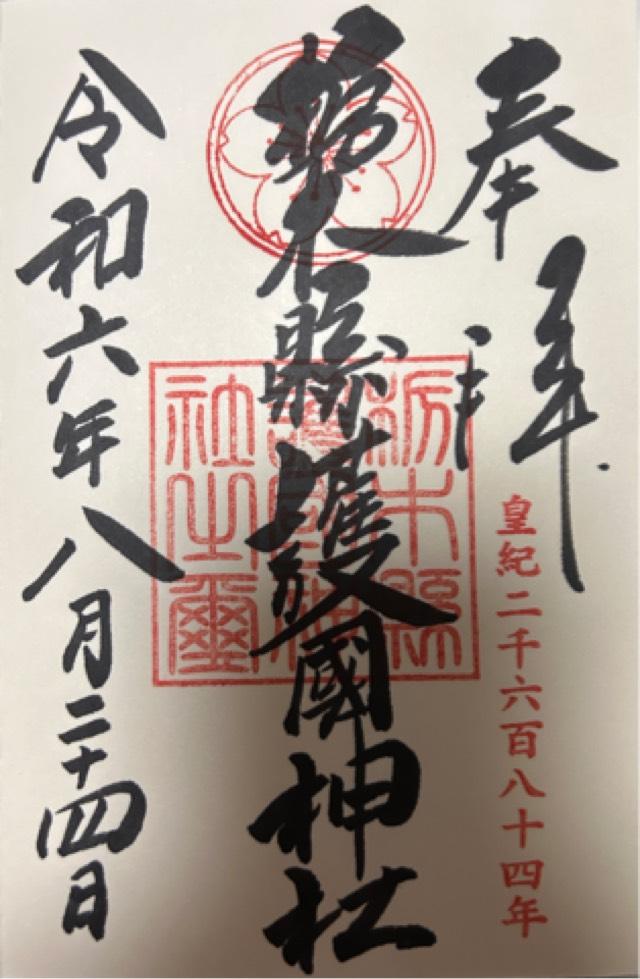 奉拜
皇紀二千六百八十四年
栃木縣護國神社
栃木縣
護國神
社之璽
令和六年八月二十四日